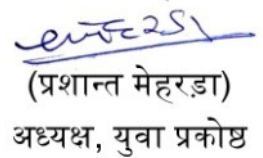 (प्रशान्त मेहरड़ा)
अध्यक्ष, युवा प्रकोष्ठ